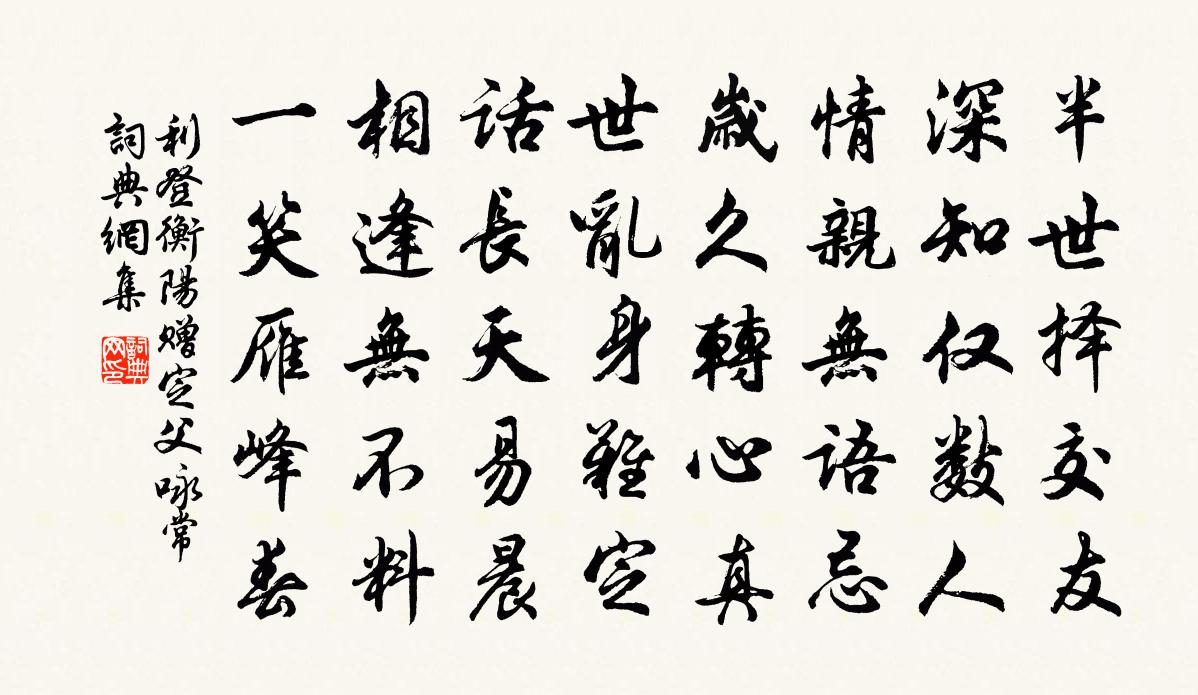 半世择交友
深知仅數人
情親無語忌
歲久轉心真
世亂身難定
話長天易晨
相逢無不料
一笑雁峰春
利登衡陽贈定父咏常
詞典網集
詞典網印